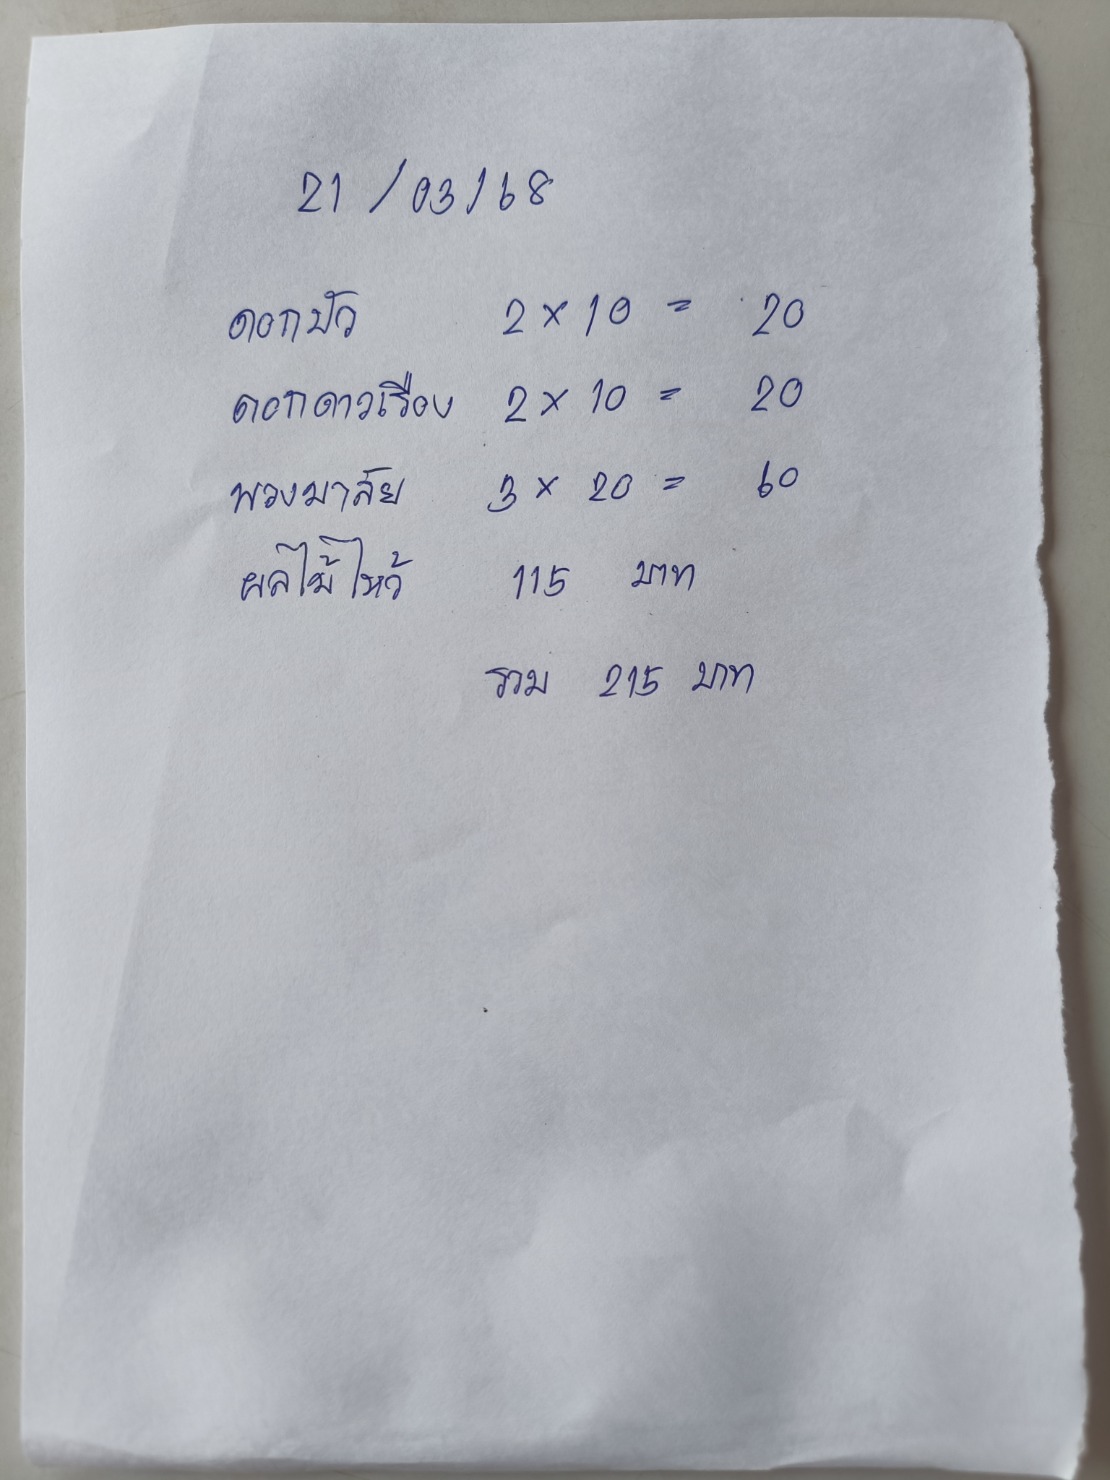 21/03/68
ดอกบัว 2 × 10 = 20
ดอกดาวเรือง 2 × 10 = 20
พวงมาลัย 3 × 20 = 60
ผลไม้ไหว้ 115 บาท
รวม 215 บาท